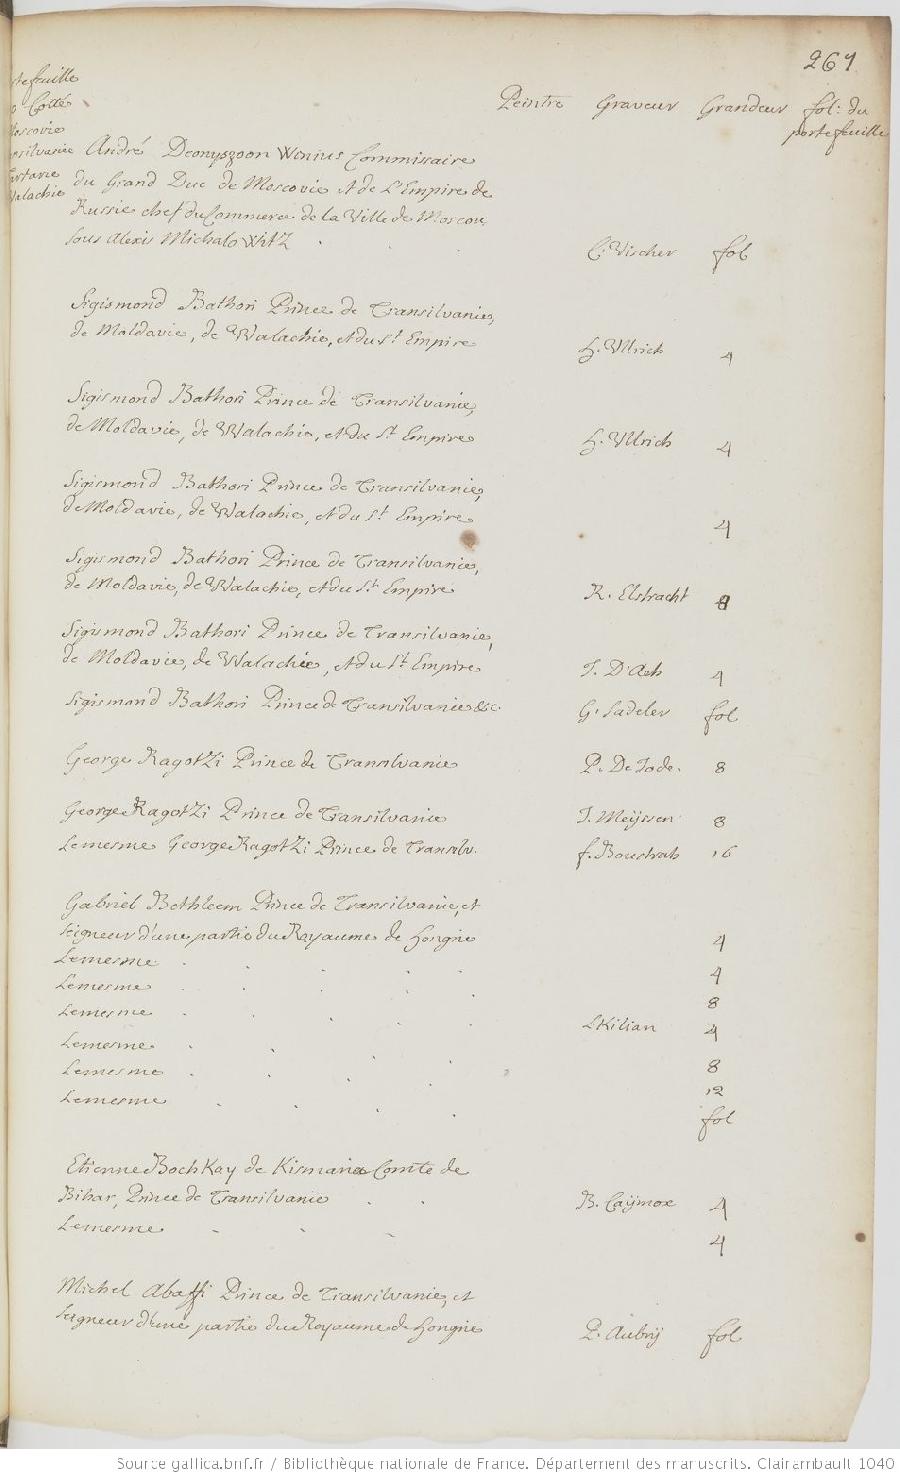 267
tefeuille
Cotté
Moscovie
nsilvanie
artarie
Valachie
Peintre Graveur Grandeur fol: du
portefeuille
André Deonyszoon Winius Commissaire
du Grand Duc de Moscovie et de L'Empire de
Russie chef du Commerce de la Ville de Moscou
sous Alexis Michalowitz C. Vischer fol
Sigismond Bathori Prince de Transilvanie,
de Moldavie, de Walachie, et du St Empire H. Vllrich 4
Sigismond Bathori Prince de Transilvanie,
de Moldavie, de Walachie, et du St Empire H. Vllrich 4
Sigismond Bathori Prince de Transilvanie,
de Moldavie, de Walachie, et du St Empire 4
Sigismond Bathori Prince de Transilvanie,
de Moldavie, de Walachie, et du St Empire R. Elstracht 8
Sigismond Bathori Prince de Transilvanie,
de Moldavie, de Walachie, et du St Empire J. D'Ach 4
Sigismond Bathori Prince de Transilvanie &c. G. Sadeler fol
George Ragotzi Prince de Transilvanie P. De Jode. 8
George Ragotzi Prince de Transilvanie J. Meÿssen 8
Lemesme George Ragotzi Prince de Transilv. f. Boustrah 16
Gabriel Bethleem Prince de Transilvanie, et
seigneur d'une partie du Royaume de hongrie 4
Lemesme 4
Lemesme 8
Lemesme LKilian 4
Lemesme 8
Lemesme 12
Lemesme fol
Etienne BochKay de Kismaria Comte de
Bihar, Prince de Transilvanie B. Caÿmox 4
Lemesme 4
Michel Abaffi Prince de Transilvanie, et
seigneur d'une partie du Royaume de hongrie P. Aubrÿ fol
Source gallica.bnf.fr / Bibliothèque nationale de France. Département des manuscrits. Clairambault 1040